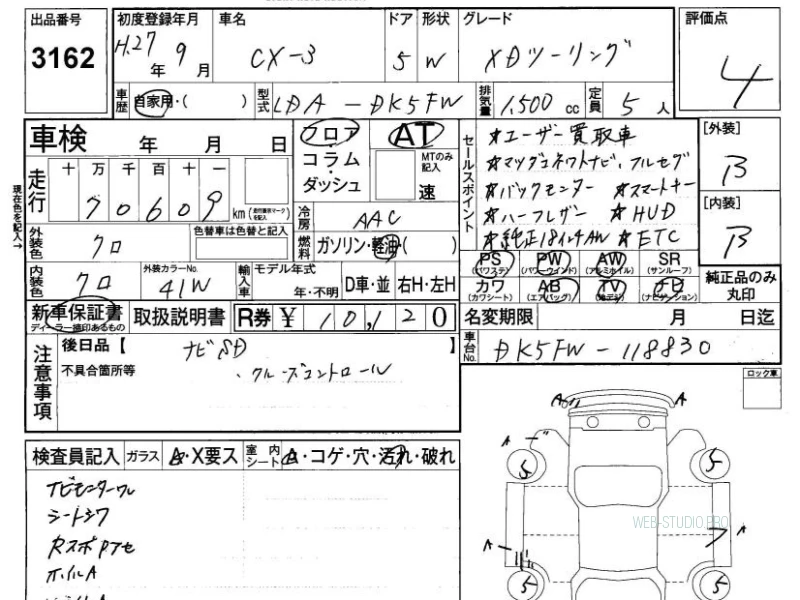 出品番号
3162
初度登録年月
H.27 年 9 月
車名
CX-3
ドア
5
形状
W
グレード
XDツーリング
評価点
4
車歴
自家用・( )
型式
LDA - DK5FW
排気量
1,500 cc
定員
5 人
車検 年 月 日
フロア
コラム
・
ダッシュ
AT
MTのみ記入
速
セールスポイント
★ユーザー買取車
★マツダコネクトナビ、フルセグ
★バックモニター ★スマートキー
★ハーフレザー ★HUD
★純正18インチAW ★ETC
[外装]
B
[内装]
B
現在色を記入→
走行
十 万 千 百 十 一
7 0 6 0 9
km
(走行要確認マークを記入)
冷房
AAC
燃料
ガソリン・軽油( )
外装色
クロ
色替車は色替と記入
内装色
クロ
外装カラーNo.
41W
輸入車
モデル年式
年・不明
D車・並
右H・左H
PS (パワステ)
PW (パワーウインド)
AW (アルミホイル)
SR (サンルーフ)
カワ (カワシート)
AB (エアバッグ)
TV (地デジ)
ナビ (ナビゲーション)
純正品のみ
丸印
新車保証書
ディーラー捺印あるもの
取扱説明書
R券 ¥ 10,120
名変期限 月 日迄
車台No.
DK5FW-118830
注意事項
後日品【 ナビSD 】
不具合箇所等
・クルーズコントロール
ロック車
検査員記入
ガラス
A・X要ス
室内シート
A・コゲ・穴・汚れ・破れ
ナビモニターワレ
シートシワ
RスポPアセ
ホイルA
A
A
A
5
5
WEB-STUDIO.PRO
A
A
5
5